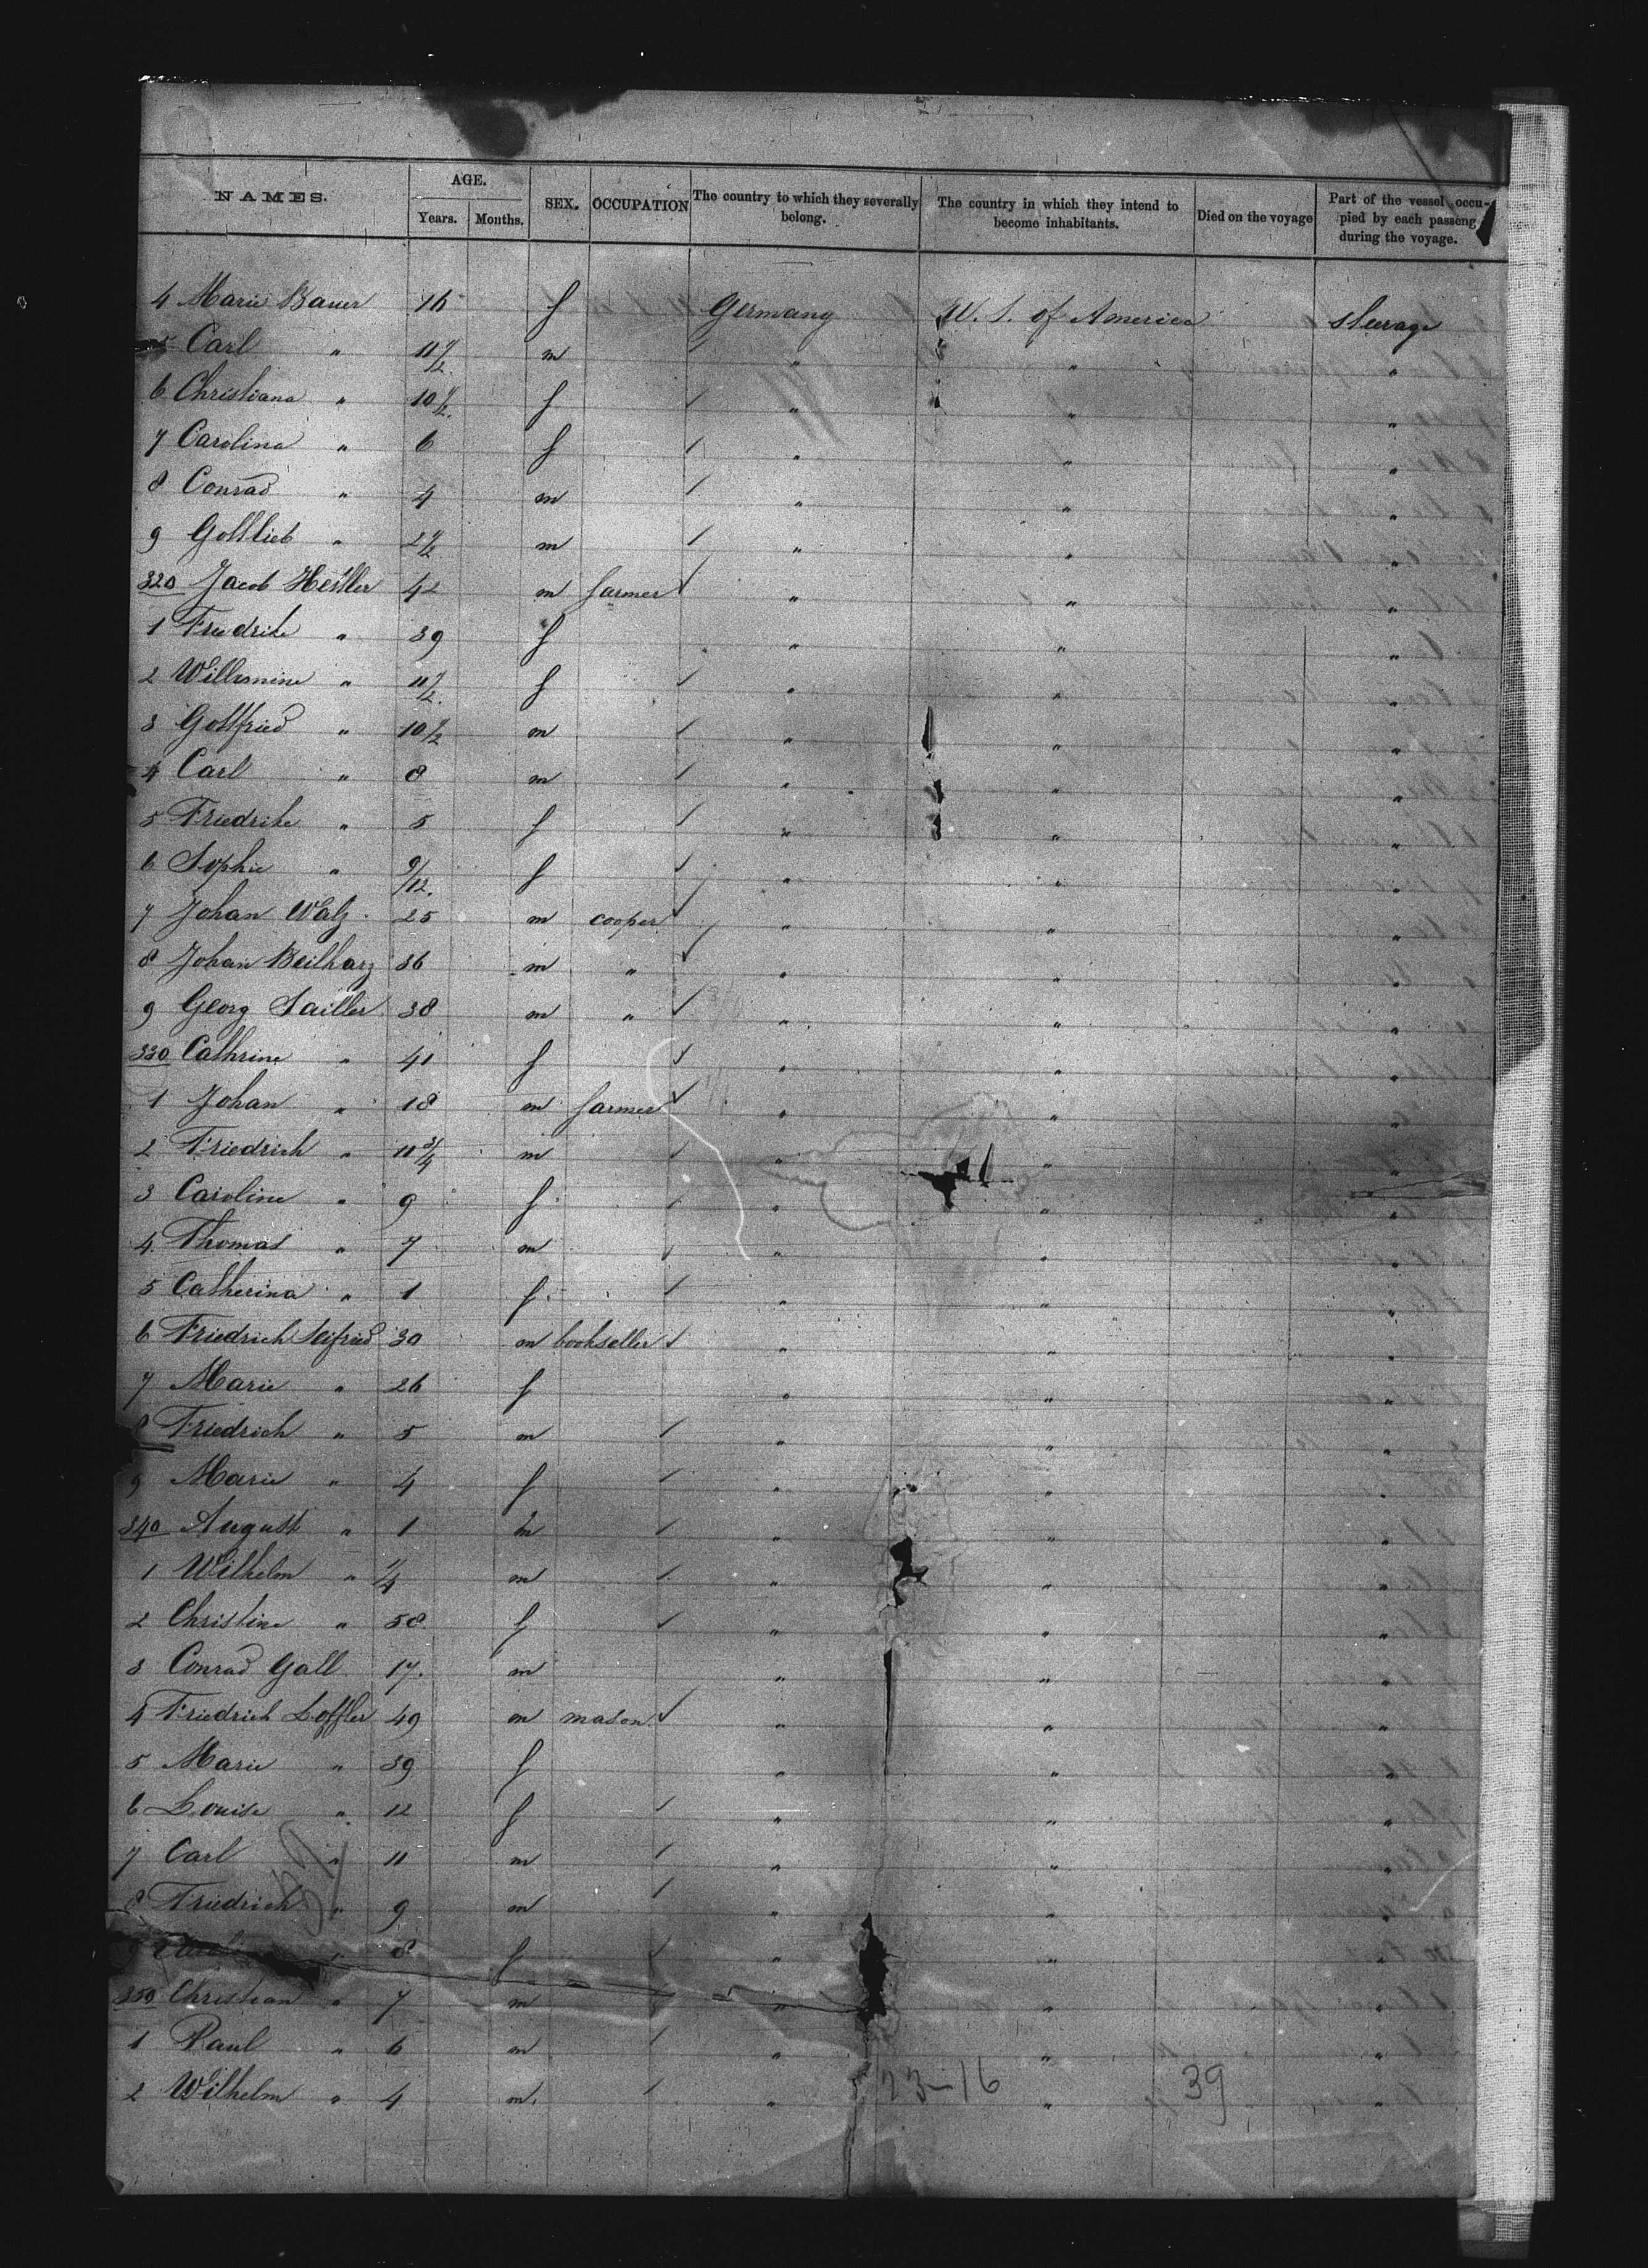 NAMES. AGE. Years. Months. SEX. OCCUPATION The country to which they severally belong. The country in which they intend to become inhabitants. Died on the voyage Part of the vessel occupied by each passeng during the voyage.
4 Marie Bauer 16 f Germany U. S. of America steerage
5 Carl " 11 1/2 m " " "
6 Christiana " 10 1/2 f " " "
7 Carolina " 6 f " " "
8 Conrad " 4 m " " "
9 Gottlieb " 2 1/2 m " " "
320 Jacob Heitler 42 m farmer " " "
1 Friedrike " 39 f " " "
2 Willemine " 11 1/2 f " " "
3 Gottfried " 10 1/2 m " " "
4 Carl " 8 m " " "
5 Friedrike " 5 f " " "
6 Sophie " 9/12 f " " "
7 Johan Walz 25 m cooper " " "
8 Johan Beilharz 36 m " " " "
9 Georg Sailler 38 m " " " "
330 Cathrine " 41 f " " "
1 Johan " 18 m farmer " " "
2 Friedrich " 11 3/4 m " " "
3 Caroline " 9 f " " "
4 Thomas " 7 m " " "
5 Catherina " 1 f " " "
6 Friedrich Seifried 30 m bookseller " " "
7 Marie " 26 f " " "
8 Friedrich " 5 m " " "
9 Marie " 4 f " " "
340 August " 1 m " " "
1 Wilhelm " 1/4 m " " "
2 Christine " 58 f " " "
3 Conrad Gall 17 m " " "
4 Friedrich Loffler 49 m mason " " "
5 Marie " 39 f " " "
6 Louise " 12 f " " "
7 Carl " 11 m " " "
8 Friedrich " 9 m " " "
9 " 8 f " " "
350 Christian " 7 m " " "
1 Paul " 6 m " " "
2 Wilhelm " 4 m " " "
23-16 39